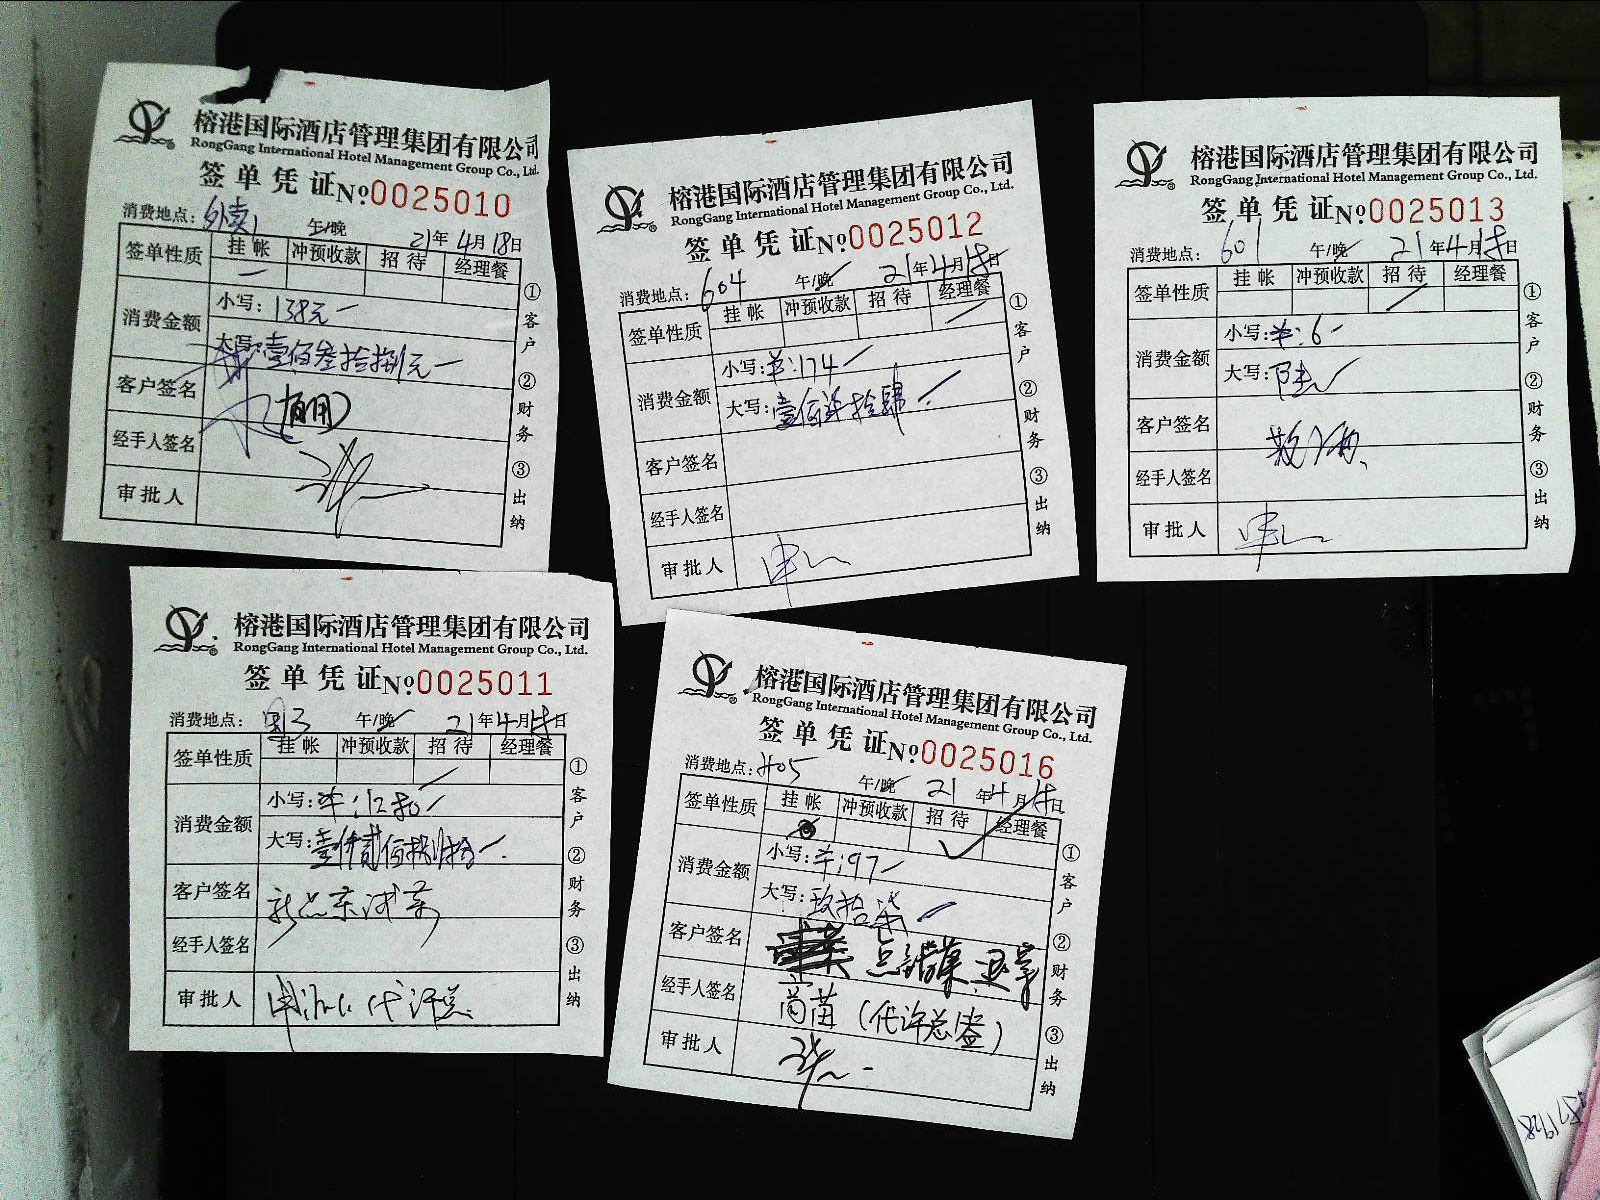 榕港国际酒店管理集团有限公司
RongGang International Hotel Management Group Co., Ltd.
签单凭证No.0025010
消费地点：外卖1 午/晚 21年4月18日
签单性质 挂帐 冲预收款 招待 经理餐
消费金额 小写：138元
大写：壹佰叁拾捌元
客户签名
经手人签名
审批人
①客户 ②财务 ③出纳
榕港国际酒店管理集团有限公司
RongGang International Hotel Management Group Co., Ltd.
签单凭证No.0025012
消费地点：604 午/晚 21年4月18日
签单性质 挂帐 冲预收款 招待 经理餐
消费金额 小写：羊:174
大写：壹佰柒拾肆
客户签名
经手人签名
审批人
①客户 ②财务 ③出纳
榕港国际酒店管理集团有限公司
RongGang International Hotel Management Group Co., Ltd.
签单凭证No.0025013
消费地点：601 午/晚 21年4月18日
签单性质 挂帐 冲预收款 招待 经理餐
消费金额 小写：羊:6
大写：陆
客户签名
经手人签名
审批人
①客户 ②财务 ③出纳
榕港国际酒店管理集团有限公司
RongGang International Hotel Management Group Co., Ltd.
签单凭证No.0025011
消费地点： 午/晚 21年4月18日
签单性质 挂帐 冲预收款 招待 经理餐
消费金额 小写：羊:1280
大写：壹仟贰佰捌拾
客户签名
经手人签名
审批人 代许总
①客户 ②财务 ③出纳
榕港国际酒店管理集团有限公司
RongGang International Hotel Management Group Co., Ltd.
签单凭证No.0025016
消费地点： 午/晚 21年4月18日
签单性质 挂帐 冲预收款 招待 经理餐
消费金额 小写：羊:97
大写：玖拾柒
客户签名
经手人签名 （代许总签）
审批人
①客户 ②财务 ③出纳